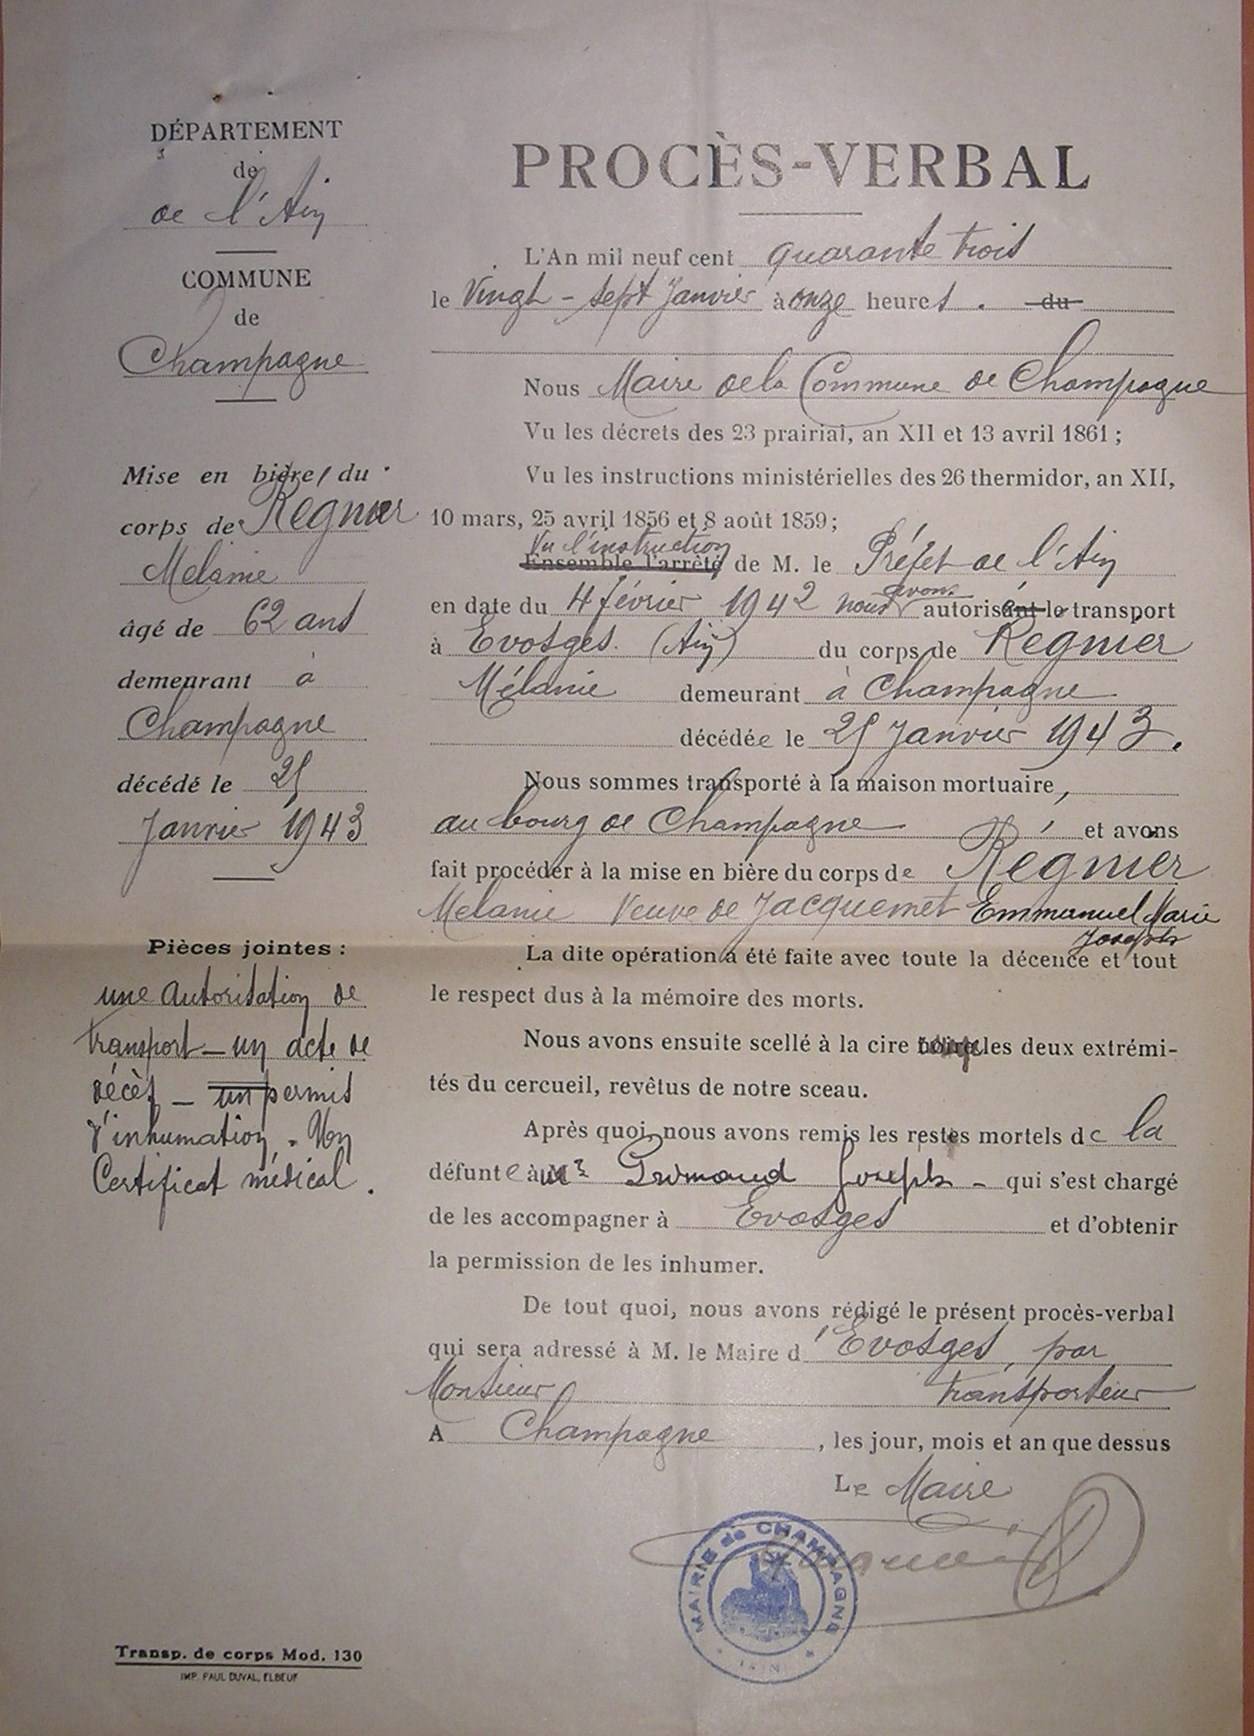 DÉPARTEMENT
de
de l'Ain
COMMUNE
de
Champagne
Mise en bière du
corps de Régnier
Mélanie
âgé de 62 ans
demeurant à
Champagne
décédé le 25
Janvier 1943
Pièces jointes :
une autorisation de
transport _ un acte de
décès _ un permis
d'inhumation . Un
Certificat médical .
Transp. de corps Mod. 130
IMP. PAUL DUVAL, ELBEUF
PROCÈS-VERBAL
L'An mil neuf cent quarante trois
le Vingt-sept Janvier à onze heures . du
Nous Maire de la Commune de Champagne
Vu les décrets des 23 prairial, an XII et 13 avril 1861 ;
Vu les instructions ministérielles des 26 thermidor, an XII,
10 mars, 25 avril 1856 et 8 août 1859 ;
Vu l'instruction
Ensemble l'arrêté de M. le Préfet de l'Ain
en date du 4 février 1942 nous avons autorisant le transport
à Evosges. (Ain) du corps de Régnier
Mélanie demeurant à Champagne
décédée le 25 Janvier 1943.
Nous sommes transporté à la maison mortuaire,
au bourg de Champagne et avons
fait procéder à la mise en bière du corps de Régnier
Mélanie Veuve de Jacquemet Emmanuel Marie
Joseph
La dite opération a été faite avec toute la décence et tout
le respect dus à la mémoire des morts.
Nous avons ensuite scellé à la cire les deux extrémi-
tés du cercueil, revêtus de notre sceau.
Après quoi, nous avons remis les restes mortels de la
défunte à Mr Grimaud Joseph - qui s'est chargé
de les accompagner à Evosges et d'obtenir
la permission de les inhumer.
De tout quoi, nous avons rédigé le présent procès-verbal
qui sera adressé à M. le Maire d'Evosges, par
Monsieur transporteur
A Champagne , les jour, mois et an que dessus
Le Maire
MAIRIE de CHAMPAGNE